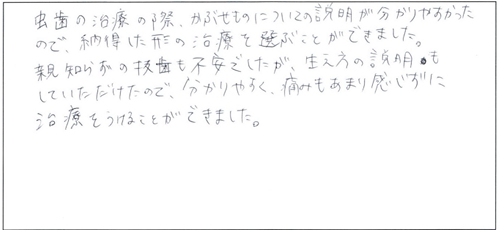 虫歯の治療の際、かぶせものについての説明が分かりやすかった
ので、納得した形の治療を選ぶことができました。
親知らずの抜歯も不安でしたが、生え方の説明も
していただけたので、分かりやすく、痛みもあまり感じずに
治療をうけることができました。